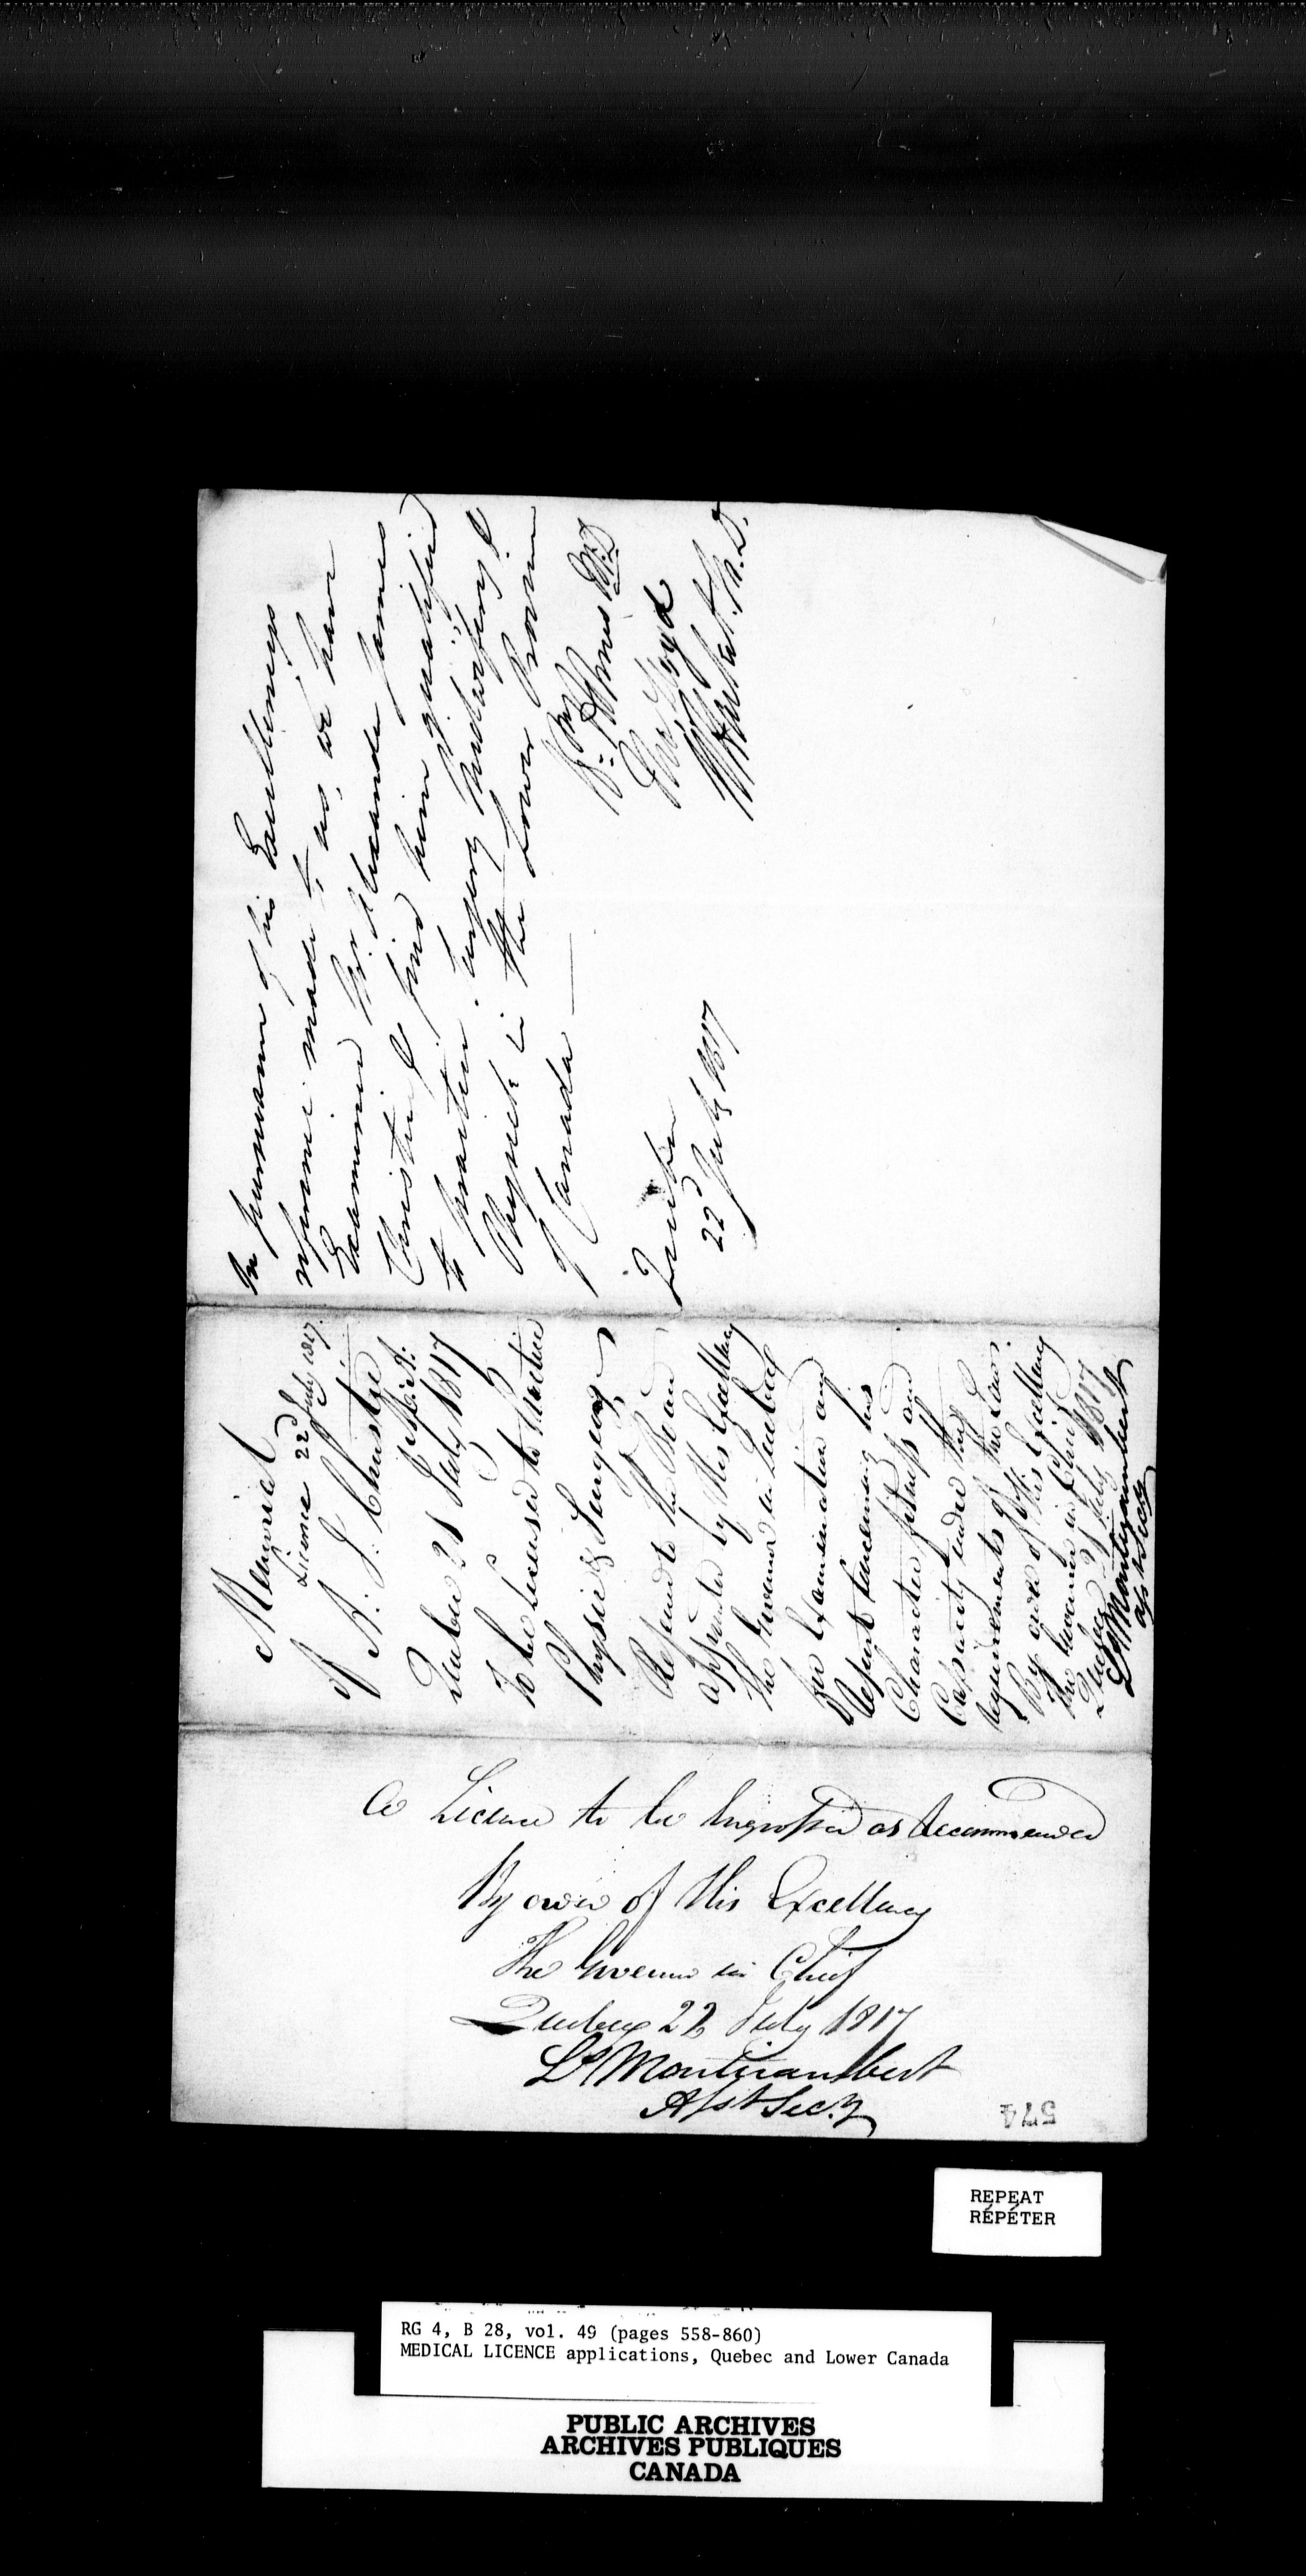 In pursuance of his Excellencys
reference made to us, we have
Examined Mr. Alexander James
Christie & find him qualified
to practice Surgery Midwifery &
Physick in the Lower Province
of Canada —
Quebec
22d July 1817
Wm Holmes M.D.
W Hacket. M.D.
Memorial
Licence 22d July 1817.
A. J. Christie
Quebec 21 July 1817
To be Licensed to Practice
Physic & Surgery
Referred to the Board
appointed by His Excellency
the Governor in Quebec
for Examination and
Report concerning his
Character fitness and
Capacity under the
requirements of the Law.
By order of His Excellency
the Governor in Chief
Quebec 21 July 1817
Ls Montizambert
Asst Secy
A Licence to be Engrossed as Recommended
By order of His Excellency
The Governor in Chief
Quebec 22 July 1817
Ls Montizambert
Asst Secy
574
REPEAT
RÉPÉTER
RG 4, B 28, vol. 49 (pages 558-860)
MEDICAL LICENCE applications, Quebec and Lower Canada
PUBLIC ARCHIVES
ARCHIVES PUBLIQUES
CANADA